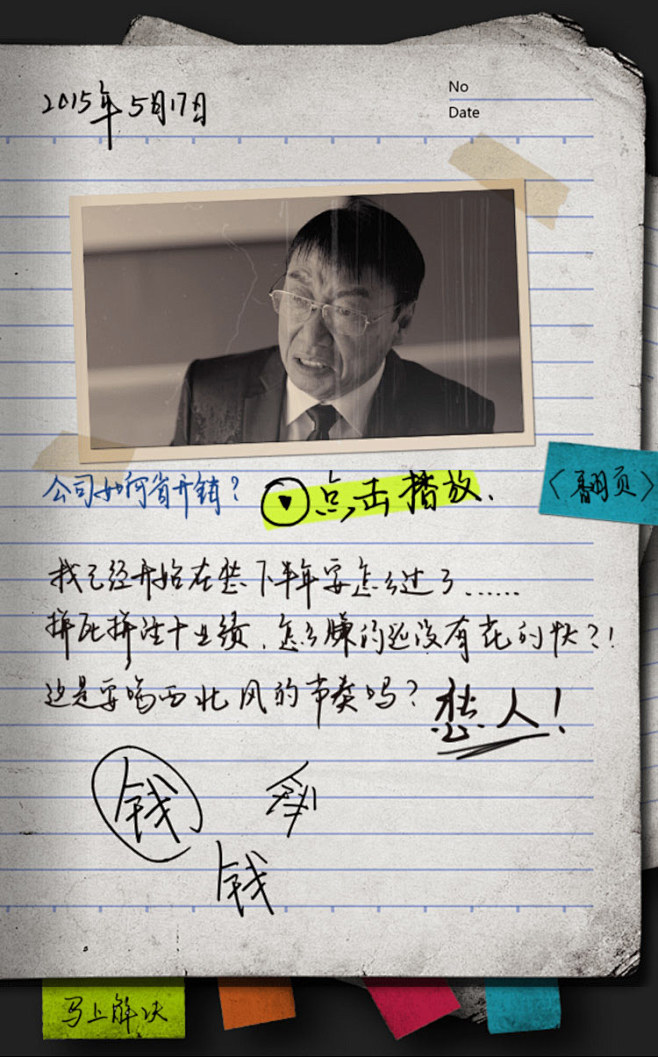 No
2015年5月17日
Date
公司如何省开销?
点击播放.
〈翻页〉
我已经开始在愁下半年要怎么过了......
拼死拼活十业绩,怎么赚的还没有花的快?!
这是要喝西北风的节奏吗?
愁人!
钱
钱
马上解决